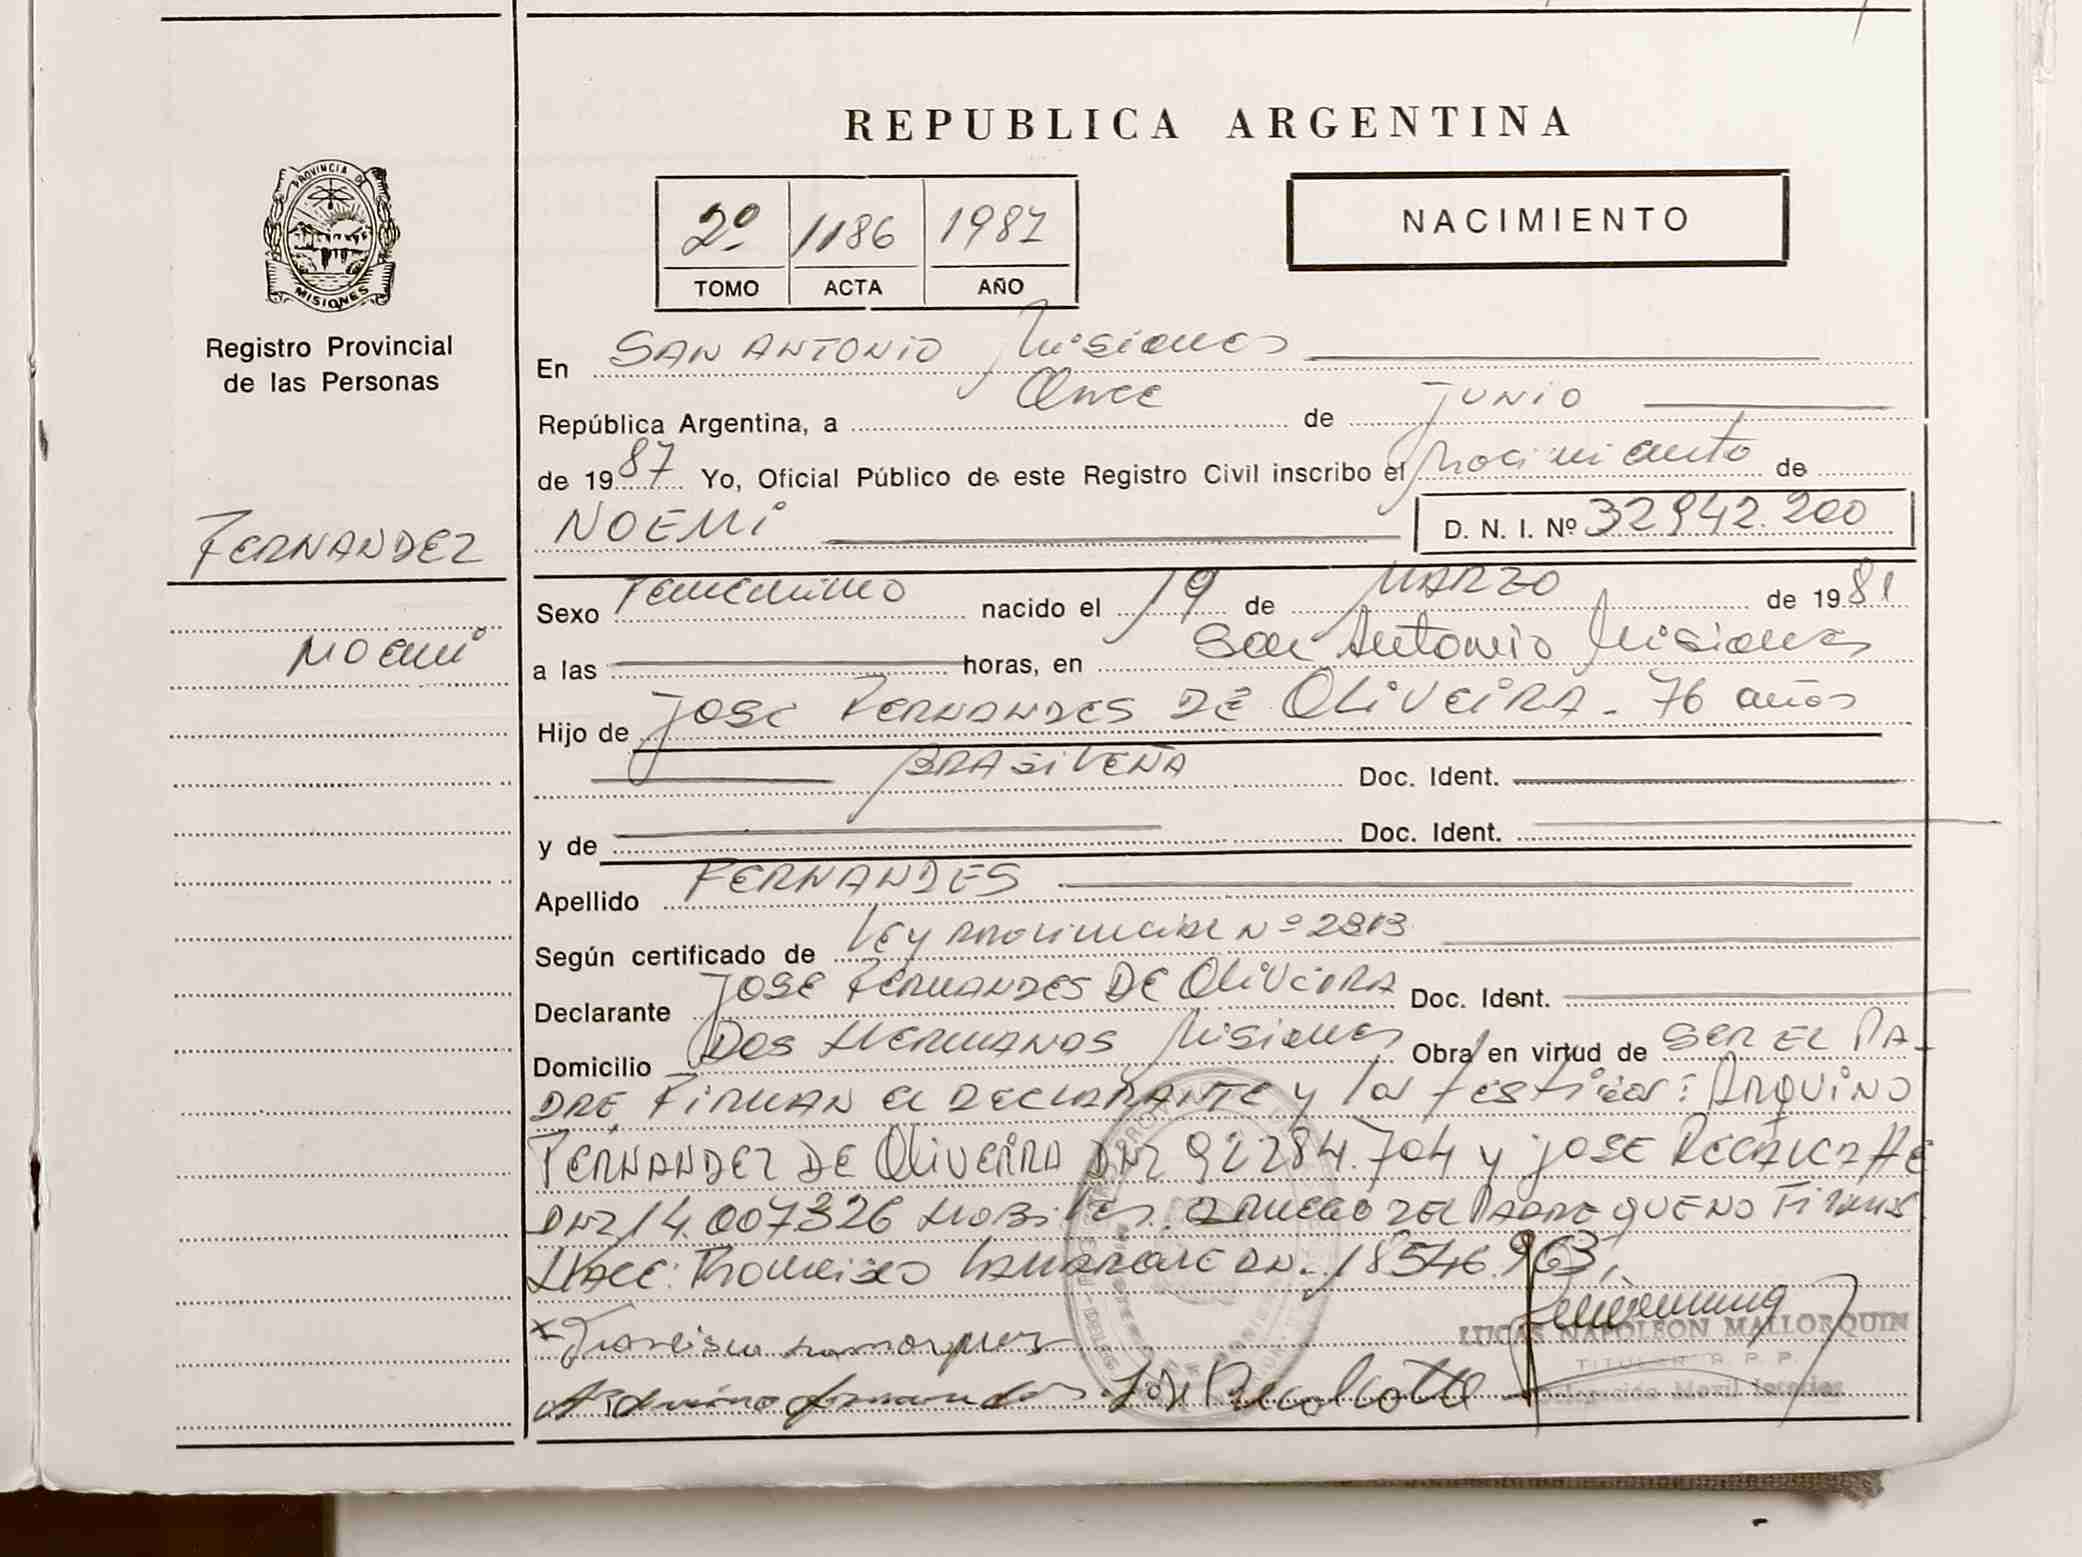 REPUBLICA ARGENTINA
PROVINCIA DE
MISIONES
Registro Provincial
de las Personas
2º 1186 1987
TOMO ACTA AÑO
NACIMIENTO
En SAN ANTONIO Misiones
República Argentina, a Once de JUNIO
de 1987 Yo, Oficial Público de este Registro Civil inscribo el Nacimiento de
FERNANDEZ
NOEMI D. N. I. Nº 32942.200
Noemi
Sexo Femenino nacido el 19 de MARZO de 1981
a las horas, en San Antonio Misiones
Hijo de JOSE FERNANDES DE OLIVEIRA - 76 años
BRASILEÑA Doc. Ident.
y de Doc. Ident.
Apellido FERNANDES
Según certificado de Ley Provincial Nº 2813
Declarante JOSE FERNANDES DE OLIVEIRA Doc. Ident.
Domicilio DOS HERMANAS Misiones Obra en virtud de SER EL PA-
DRE FIRMAN el DECLARANTE y los testigos: ARQUINO
FERNANDEZ DE OLIVEIRA DNI 92284.704 y JOSE RECALCATTE
DNI 14.007326 HABILES. A RUEGO DEL PADRE QUE NO FIRMA
HACE: Francisco DN. 18546.963,
Francisco
LUCAS NAPOLEON MALLORQUIN
TITULAR R. P. P.
Delegación Movil
Fernandes José Recalcatte